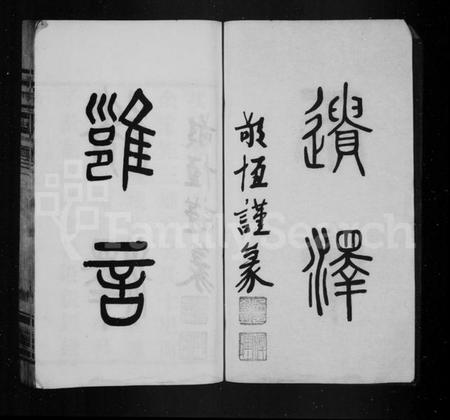 遺澤
敬恒謹篆
雝言
FamilySearch